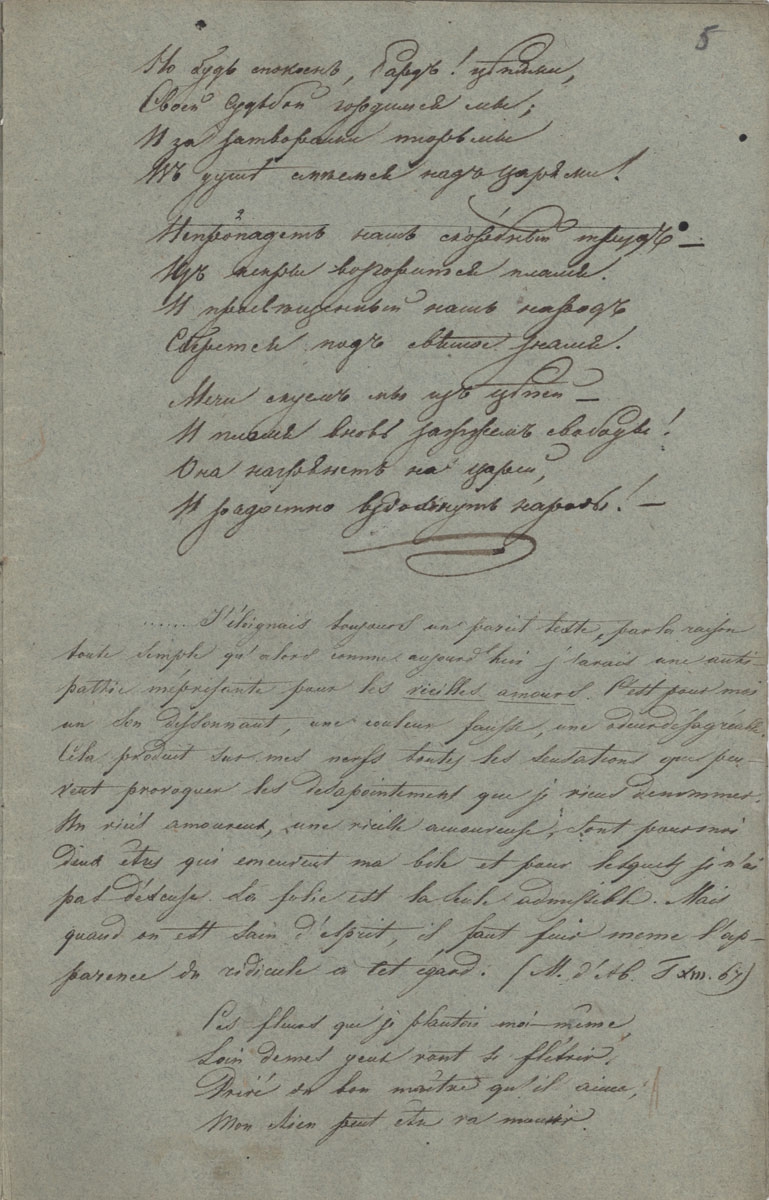 5
Но будь спокоенъ, Бардъ! цѣпями,
Своей судьбой гордимся мы;
И за затворами тюрьмы
Въ душѣ смѣемся надъ царями!
Непропадетъ нашъ скорбный трудъ —
Изъ искры возгорится пламя.
И просвѣщенный нашъ народъ
Сберется подъ святое знамя.
Мечи скуемъ мы изъ цѣпей —
И пламя вновь зажжемъ свободы!
Она нагрянетъ на царей,
И радостно вздохнутъ народы! —
...... J'éloignais toujours un pareil texte, par la raison
toute simple qu'alors comme aujourd'hui j'avais une anti-
pathie méprisante pour les vieilles amours. C'est pour moi
un son dissonnant, une couleur fausse, une odeur désagréable.
Cela produit sur mes nerfs toutes les sensations que peu-
vent provoquer les desapointement que je viens denommer.
Un vieil amoureux, une vieille amoureuse, sont pour moi
deux êtres qui emeuvent ma bile et pour lesquels je n'ai
pas d'éxcuse. La folie est la seule admissible. Mais
quand on est sain d'esprit, il faut fuir meme l'ap-
parence du ridicule a cet egard. (M. d'Ab. T. XIII. 67)
Ces fleurs que je plantois moi-même,
Loin demes yeux vont se flétrir.
Privé du bon maître qu'il aime,
Mon chien peut être va mourir.